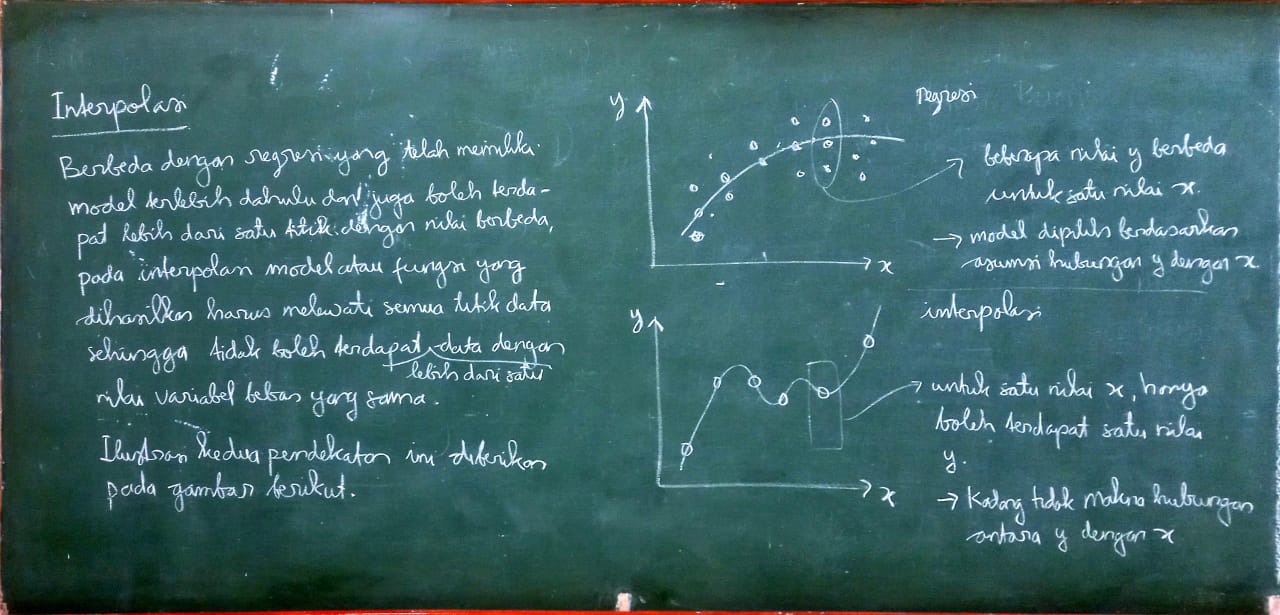 Interpolasi
Berbeda dengan regresi yang telah memiliki
model terlebih dahulu dan juga boleh terda-
pat lebih dari satu titik dengan nilai berbeda,
pada interpolasi model atau fungsi yang
dihasilkan harus melewati semua titik data
sehingga tidak boleh terdapat data dengan
lebih dari satu
nilai variabel bebas yang sama.
Ilustrasi kedua pendekatan ini diberikan
pada gambar berikut.
y
x
regresi
→ beberapa nilai y berbeda
untuk satu nilai x.
→ model dipilih berdasarkan
asumsi hubungan y dengan x.
y
x
interpolasi
→ untuk satu nilai x, hanya
boleh terdapat satu nilai
y.
→ Kadang tidak makna hubungan
antara y dengan x